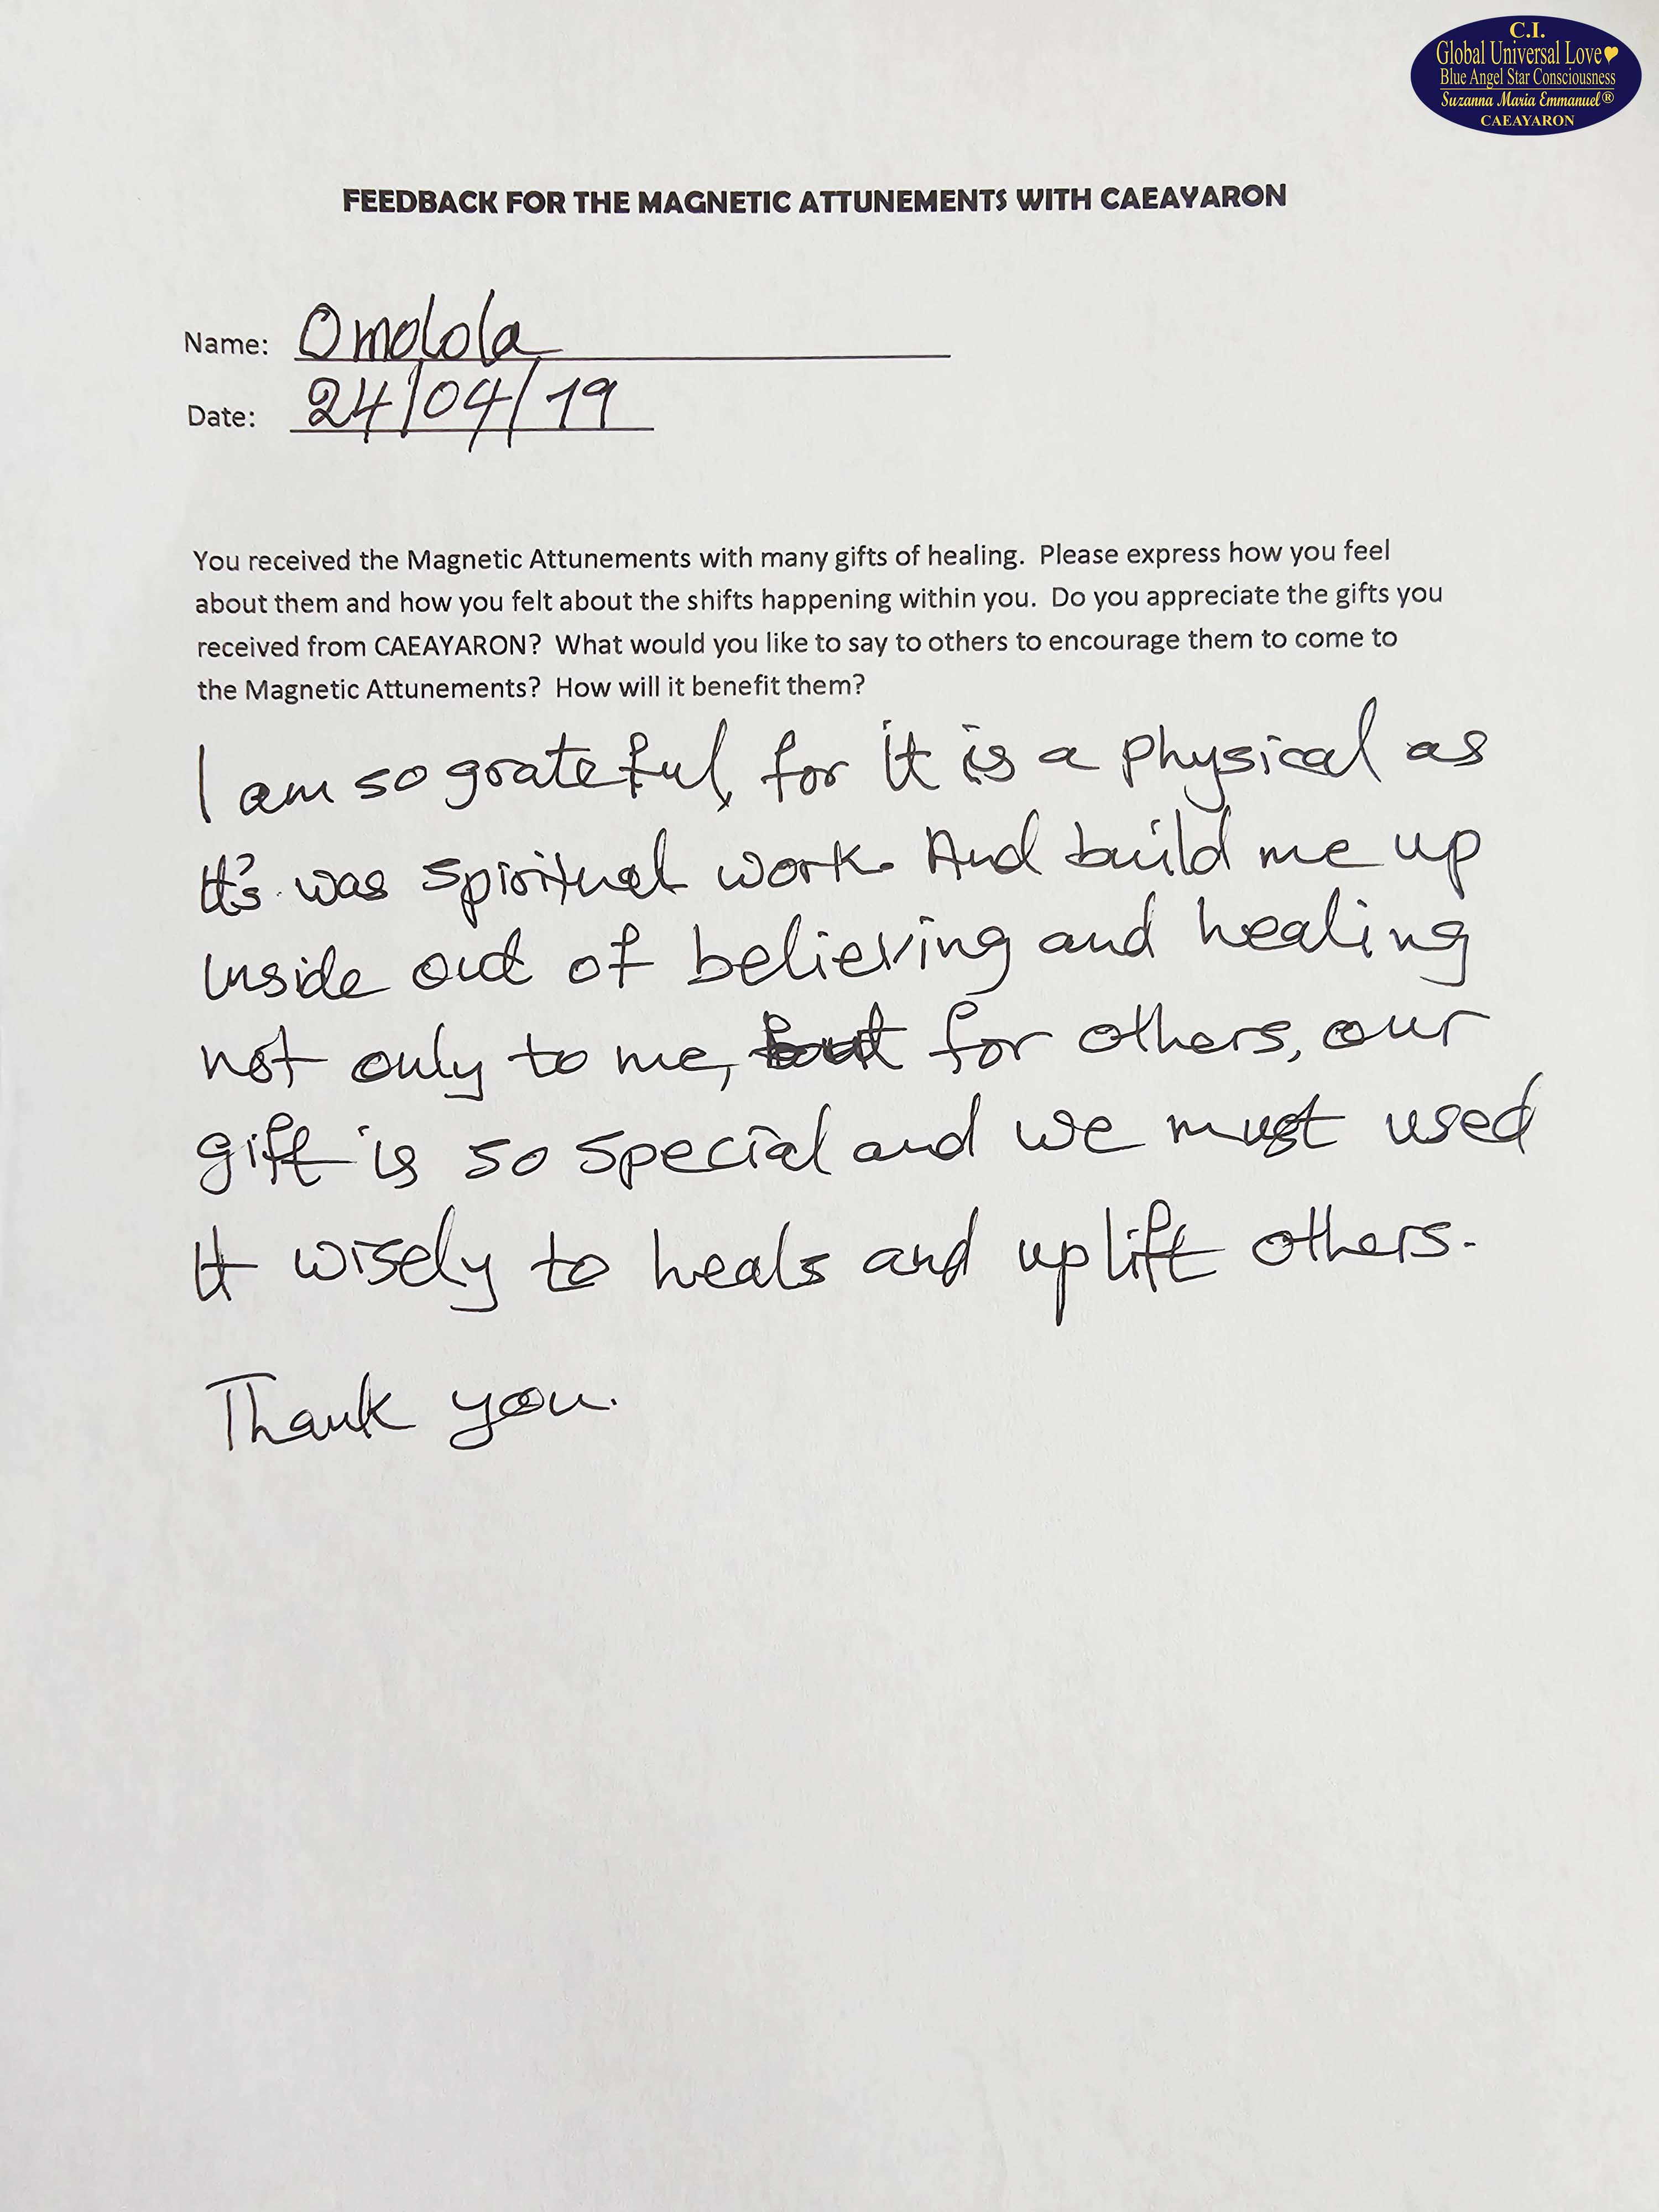 C.I.
Global Universal Love
Blue Angel Star Consciousness
Suzanna Maria Emmanuel®
CAEAYARON
FEEDBACK FOR THE MAGNETIC ATTUNEMENTS WITH CAEAYARON
Name: Omolola
Date: 24/04/19
You received the Magnetic Attunements with many gifts of healing. Please express how you feel
about them and how you felt about the shifts happening within you. Do you appreciate the gifts you
received from CAEAYARON? What would you like to say to others to encourage them to come to
the Magnetic Attunements? How will it benefit them?
I am so grateful, for it is a physical as
It's was spiritual work. And build me up
inside out of believing and healing
not only to me, but for others, our
gift is so special and we must used
It wisely to heals and uplift others.
Thank you.